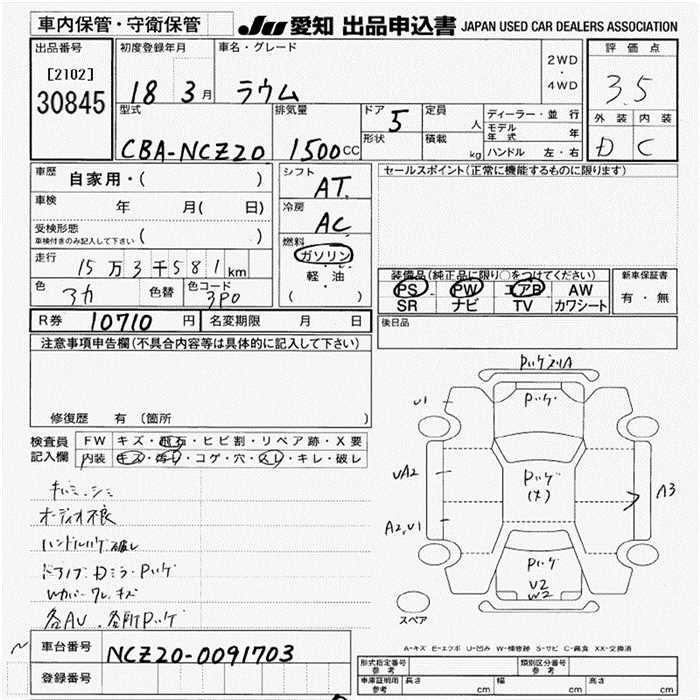 車内保管・守衛保管
JU 愛知 出品申込書 JAPAN USED CAR DEALERS ASSOCIATION
出品番号
[2102]
30845
初度登録年月
18 3月
車名・グレード
ラウム
2WD
・
4WD
評価点
3.5
外装 内装
D C
型式
CBA-NCZ20
排気量
1500cc
ドア 5
形状
定員 人
積載 kg
ディーラー・並行
モデル年式 年
ハンドル 左・右
車歴 自家用・( )
車検 年 月( 日)
受検形態
車検付きのみ記入して下さい ( )
走行 15万3千581km
色 アカ 色替 色コード 3P0
シフト AT
冷房 AC
燃料
ガソリン
・
軽・油
( )
セールスポイント(正常に機能するものに限ります)
装備品(純正品に限り○をつけてください)
PS PW エアB AW
SR ナビ TV カワシート
新車保証書
有・無
後日品
R券 10710円 名変期限 月 日
注意事項申告欄(不具合内容等は具体的に記入して下さい)
修復歴 有 (箇所 )
検査員
記入欄
FW キズ・飛石・ヒビ割・リペア跡・X要
内装 キズ・汚レ・コゲ・穴・スレ・キレ・破レ
オーディオ不良
ハンドルハゲ 破レ
ドアノブ Dミラー Pハゲ
Wカバー ワレ キズ
各AU 各所Pハゲ
Pハゲ
U1
UA2
A2,U1
Pハゲ
(大)
A3
Pハゲ
U2
W2
スペア
A-キズ E-エクボ U-凹み W-補修跡 S-サビ C-腐食 XX-交換済
車台番号 NCZ20-0091703
登録番号
形式指定番号 参考
類別区分番号 参考
車庫証明用 参考 長さ cm 幅 cm 高さ cm